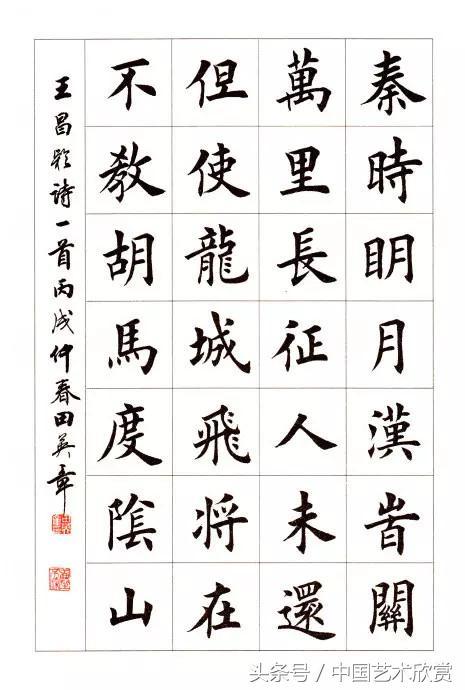 秦時明月漢旹關
萬里長征人未還
但使龍城飛將在
不教胡馬度陰山
王昌龄詩一首丙戌仲春田英章
头条号／中国艺术欣赏